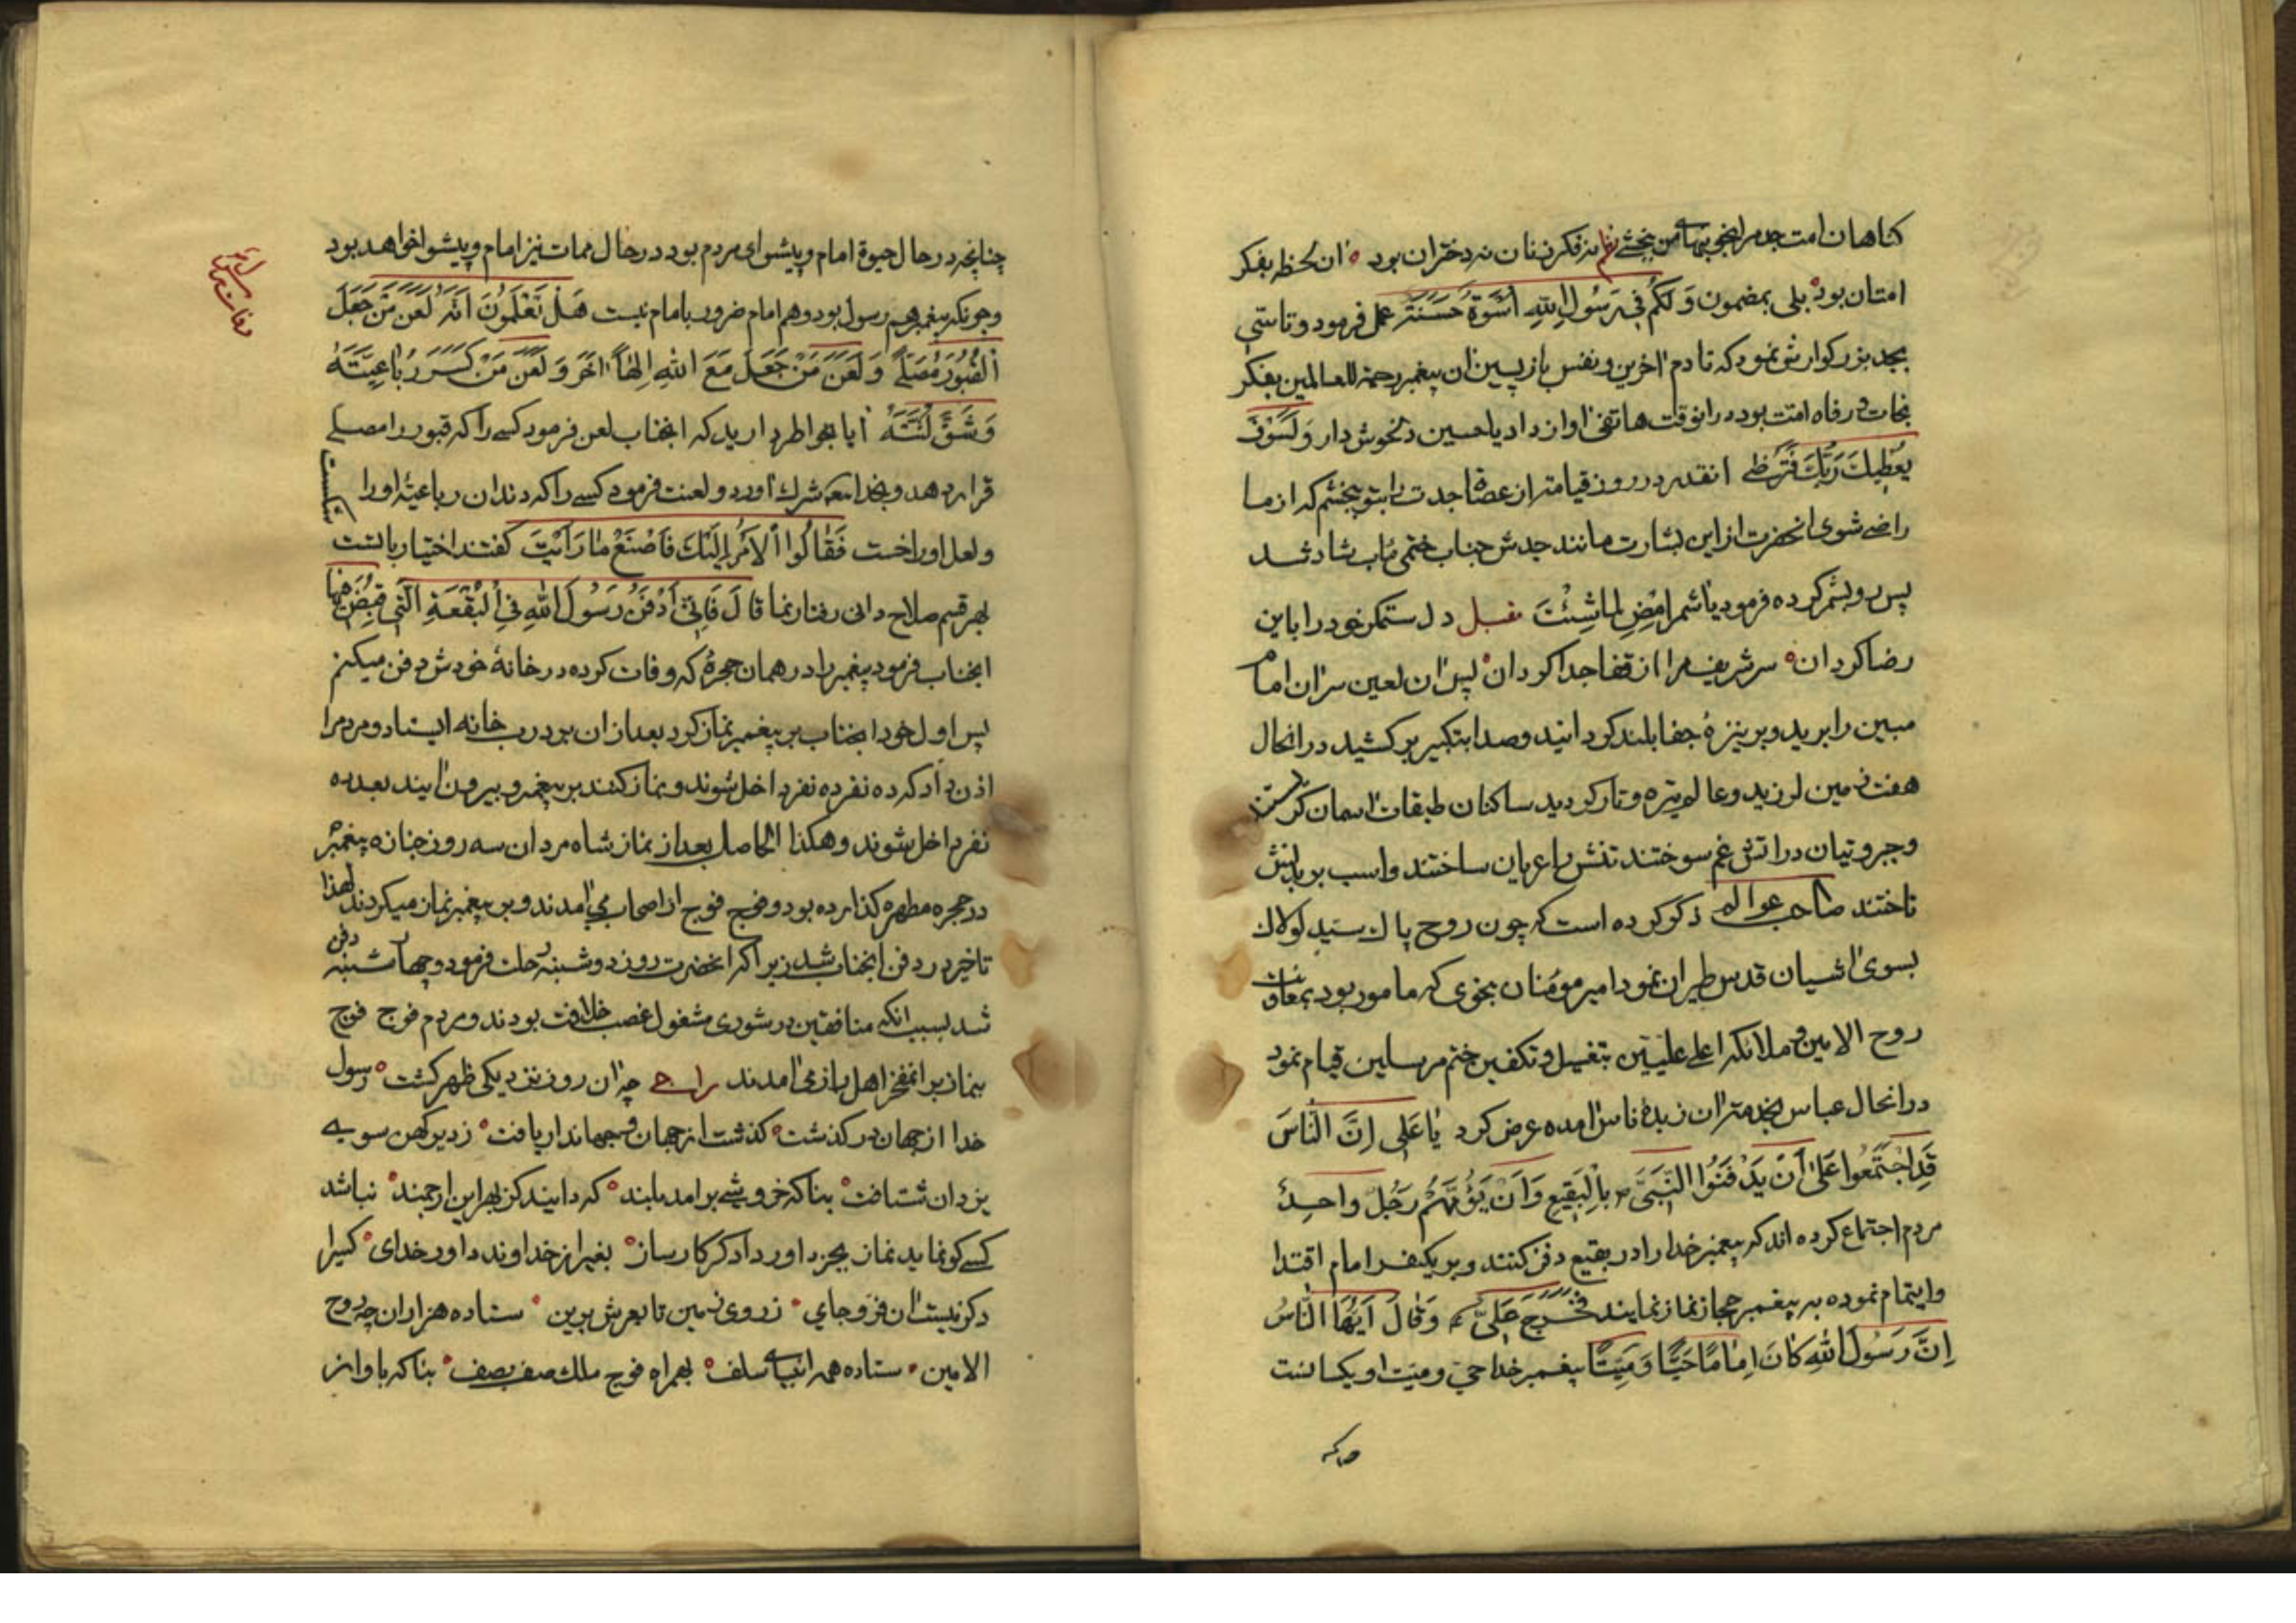 کناهان امت جدمرا بخوبیهای من ببخشی نظم نه فکر زنان نه دختران بود ه ان لحظه بفکر
امتان بود ه بلی بمضمون وَلَکُم فِی رَسُولِ اللهِ اُسْوَةٌ حَسَنَةٌ عمل فرمود و تاسّی
بجد بزرکوارش نمود که تا دم اخرین و نفس بازپسین ان پیغمبر رحمة للعالمین بفکر
نجات و رفاه امّت بود در انوقت هاتفی اواز داد یا حسین دلخوش دار وَلَسَوْفَ
یُعْطِیكَ رَبُّكَ فَتَرْضی انقدر در روز قیامت از عصاة جدت را بتو ببخشم که از ما
راضی شوی انحضرت از این بشارت مانند جدش جناب ختمی ماب شاد شد
پس رو بشمر کرده فرمود یا شمر امْضِ لِما شِئْتَ مقبل دل ستمکر خود را باین
رضا کردان ه سر شریف مرا از قفا جدا کردان ه پس ان لعین سر ان امام
مبین را برید و بر نیزهٔ جفا بلند کردانید و صدا بتکبیر برکشید در انحال
هفت زمین لرزید و عالم تیره و تار کردید ساکنان طبقات اسمان کریستند
و جبروتیان در اتش غم سوختند تنش را عریان ساختند و اسب بر بدنش
تاختند صاحب عوالم ذکر کرده است که چون روح پاك سیّد لولاك
بسوی اشیان قدس طیران نمود امیر مومنان بنحوی که مامور بود بمعاونت
روح الامین و ملائکه اعلی علیّین بتغسیل و تکفین ختم مرسلین قیام نمود
در انحال عباس بخدمت ان زبدهٔ ناس امده عرض کرد یا عَلی اِنَّ النّاسَ
قَدِ اجْتَمَعُوا عَلی اَنْ یَدْفَنُوا النَّبِیَّ بِالْبَقِیعِ وَاَنْ یَؤُمَّهُمْ رَجُلٌ واحِدٌ
مردم اجتماع کرده اند که پیغمبر خدا را در بقیع دفن کنند و بر یکنفر امام اقتدا
وایتمام نموده بر پیغمبر حجاز نماز نمایند فَخَرَجَ عَلِیٌّ وَقالَ اَیُّهَا النّاسُ
اِنَّ رَسُولَ اللهِ کانَ اِمامًا حَیًّا وَمَیِّتًا پیغمبر خدا حیّ و میّت او یکسانست
چنانچه در حال حیوة امام و پیشوای مردم بود در حال ممات نیز امام و پیشوا خواهد بود
وچونکه پیغمبر هم رسول بود و هم امام ضرور بامام نیست هَلْ تَعْلَمُونَ اَنَّهُ لَعَنَ مَنْ جَعَلَ
الْقُبُورَ مُصَلّیً وَلَعَنَ مَنْ جَعَلَ مَعَ اللهِ اِلهًا اخَرَ وَلَعَنَ مَنْ کَسَرَ رُباعِیَّتَهُ
وَشَقَّ لَثَتَهُ ایا بخواطر دارید که انجناب لعن فرمود کسی را که قبور را مصلی
قرار دهد و بخدا شرك اورد و لعنت فرمود کسی را که دندان رباعیّهٔ او را شکست
و لعل او را خست فَقالُوا اَلْاَمْرُ اِلَیْكَ فَاصْنَعْ ما رَاَیْتَ کفتند اختیار باتست
بهر قسم صلاح دانی رفتار نما قالَ فَاِنّی اَدْفَنُ رَسُولَ اللهِ فِی الْبُقْعَةِ الَّتی قُبِضَ فیها
انجناب فرمود پیغمبر را در همان حجرهٔ که وفات کرده در خانهٔ خودش دفن میکنم
پس اول خود انجناب بر پیغمبر نماز کرد بعد از ان بر درب خانه ایستاد و مردم را
اذن داد که ده نفر ده نفر داخل شوند و نماز کنند بر پیغمبر و بیرون ایند بعد ده
نفر داخل شوند و هکذا الحاصل بعد از نماز شاه مردان سه روز جنازه پیغمبر
در حجره مطهره کذارده بود و فوج فوج از اصحاب می امدند و بر پیغمبر نماز میکردند لهذا
تاخیر در دفن انجناب شد زیرا که انحضرت روز دوشنبه رحلت فرمود و چهارشنبه دفن
شد بسبب انکه منافقین در شوری مشغول غصب خلافت بودند و مردم فوج فوج
بنماز بر انمفخر اهل راز می امدند راجی چه ان روز نزدیکی ظهر کشت ه رسول
خدا از جهان در کذشت ه کذشت از جهان و جهاندار یافت ه ز دیر کهن سوی
یزدان شتافت ه بناکه خروشی برامد بلند ه که دانید کز بهر این ارجمند ه نباشد
کسی کو نماید نماز بجز داور دادکر کارساز ه بغیر از خداوند داور خدای ه کسیرا
دکر نیست ان فرّ و جای ه ز روی زمین تا بعرش برین ه ستاده هزاران چه روح
الامین ه ستاده همه انبیای سلف ه بهمراه فوج ملك صف بصف ه بناکه باواز